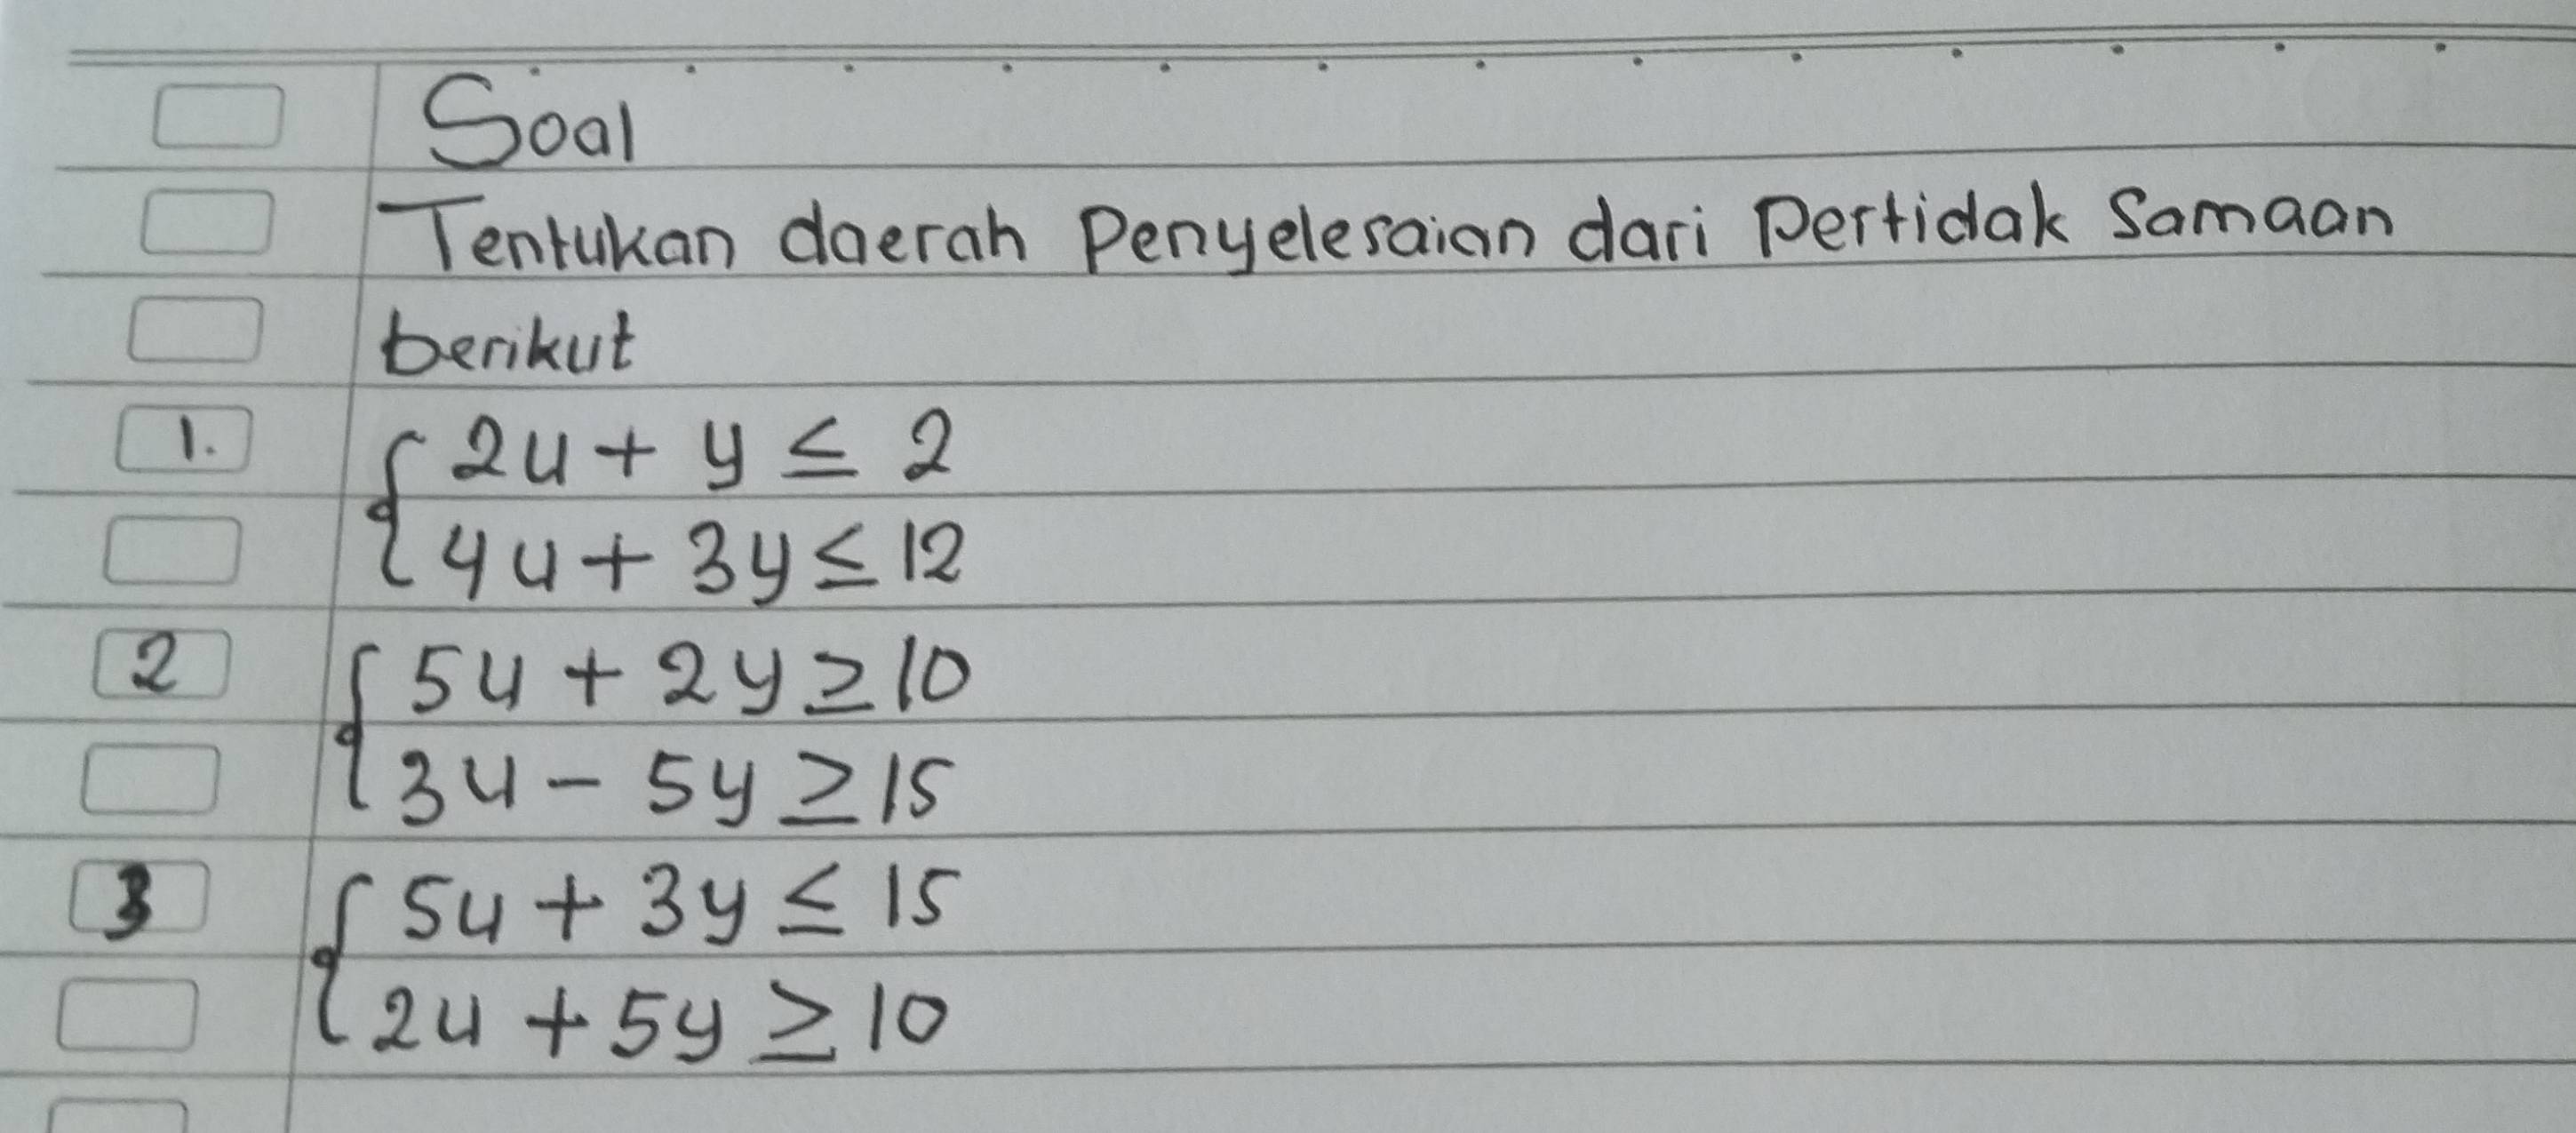 Soal
Tentukan daerah Penyelesaian dari Pertidak Samaan
berikut
1. { 2u + y ≤ 2
4u + 3y ≤ 12
2 { 5u + 2y ≥ 10
3u - 5y ≥ 15
3 { 5u + 3y ≤ 15
2u + 5y ≥ 10